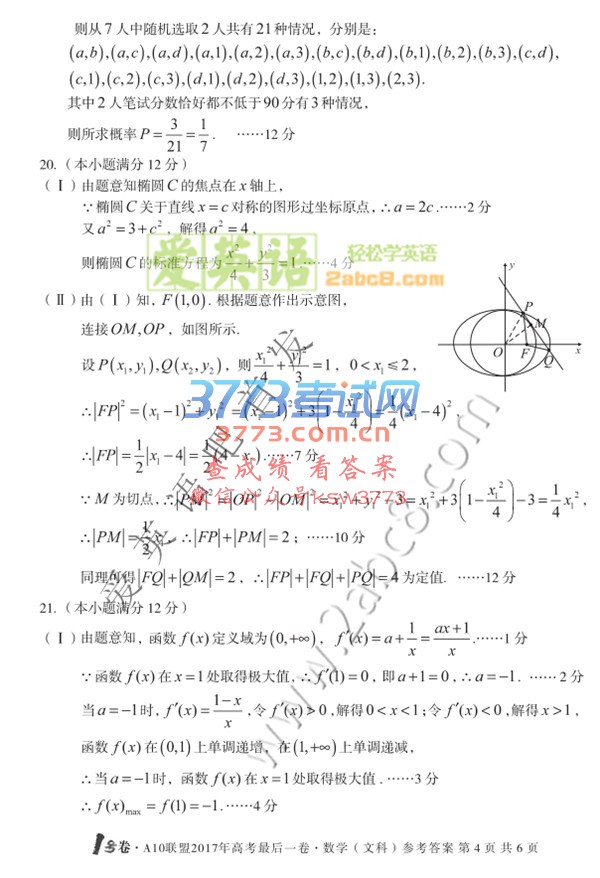 则从7人中随机选取2人共有21种情况，分别是：
(a,b),(a,c),(a,d),(a,1),(a,2),(a,3),(b,c),(b,d),(b,1),(b,2),(b,3),(c,d),
(c,1),(c,2),(c,3),(d,1),(d,2),(d,3),(1,2),(1,3),(2,3).
其中2人笔试分数恰好都不低于90分有3种情况，
则所求概率P=3/21=1/7. ……12分
20.（本小题满分12分）
（Ⅰ）由题意知椭圆C的焦点在x轴上，
∵椭圆C关于直线x=c对称的图形过坐标原点，∴a=2c.……2分
又a²=3+c²，解得a²=4，
则椭圆C的标准方程为x²/4+y²/3=1.……4分
爱英语吧
轻松学英语
2abc8.com
（Ⅱ）由（Ⅰ）知，F(1,0). 根据题意作出示意图，
连接OM,OP，如图所示.
y
P
M
O
F
Q
x
设P(x₁,y₁),Q(x₂,y₂)，则x₁²/4+y₁²/3=1，0<x₁≤2，
∴|FP|²=(x₁-1)²+y₁²=(x₁-1)²+3(1-x₁²/4)=1/4(x₁-4)²，
∴|FP|=1/2|x₁-4|=1/2(4-x₁).……7分
∵M为切点，∴|PM|²=|OP|²-|OM|²=x₁²+y₁²-3=x₁²+3(1-x₁²/4)-3=1/4x₁²，
∴|PM|=1/2x₁，∴|FP|+|PM|=2；……10分
同理可得|FQ|+|QM|=2，∴|FP|+|FQ|+|PQ|=4为定值. ……12分
3773考试网
3773.com.cn
查成绩 看答案
微信公众号ksw3773
爱英语吧首发
www.2abc8.com
21.（本小题满分12分）
（Ⅰ）由题意知，函数f(x)定义域为(0,+∞)，f′(x)=a+1/x=ax+1/x.……1分
∵函数f(x)在x=1处取得极大值，∴f′(1)=0，即a+1=0，∴a=-1. ……2分
当a=-1时，f′(x)=1-x/x，令f′(x)>0，解得0<x<1；令f′(x)<0，解得x>1，
函数f(x)在(0,1)上单调递增，在(1,+∞)上单调递减，
∴当a=-1时，函数f(x)在x=1处取得极大值. ……3分
∴f(x)max=f(1)=-1.……4分
1号卷·A10联盟2017年高考最后一卷·数学（文科）参考答案 第4页 共6页